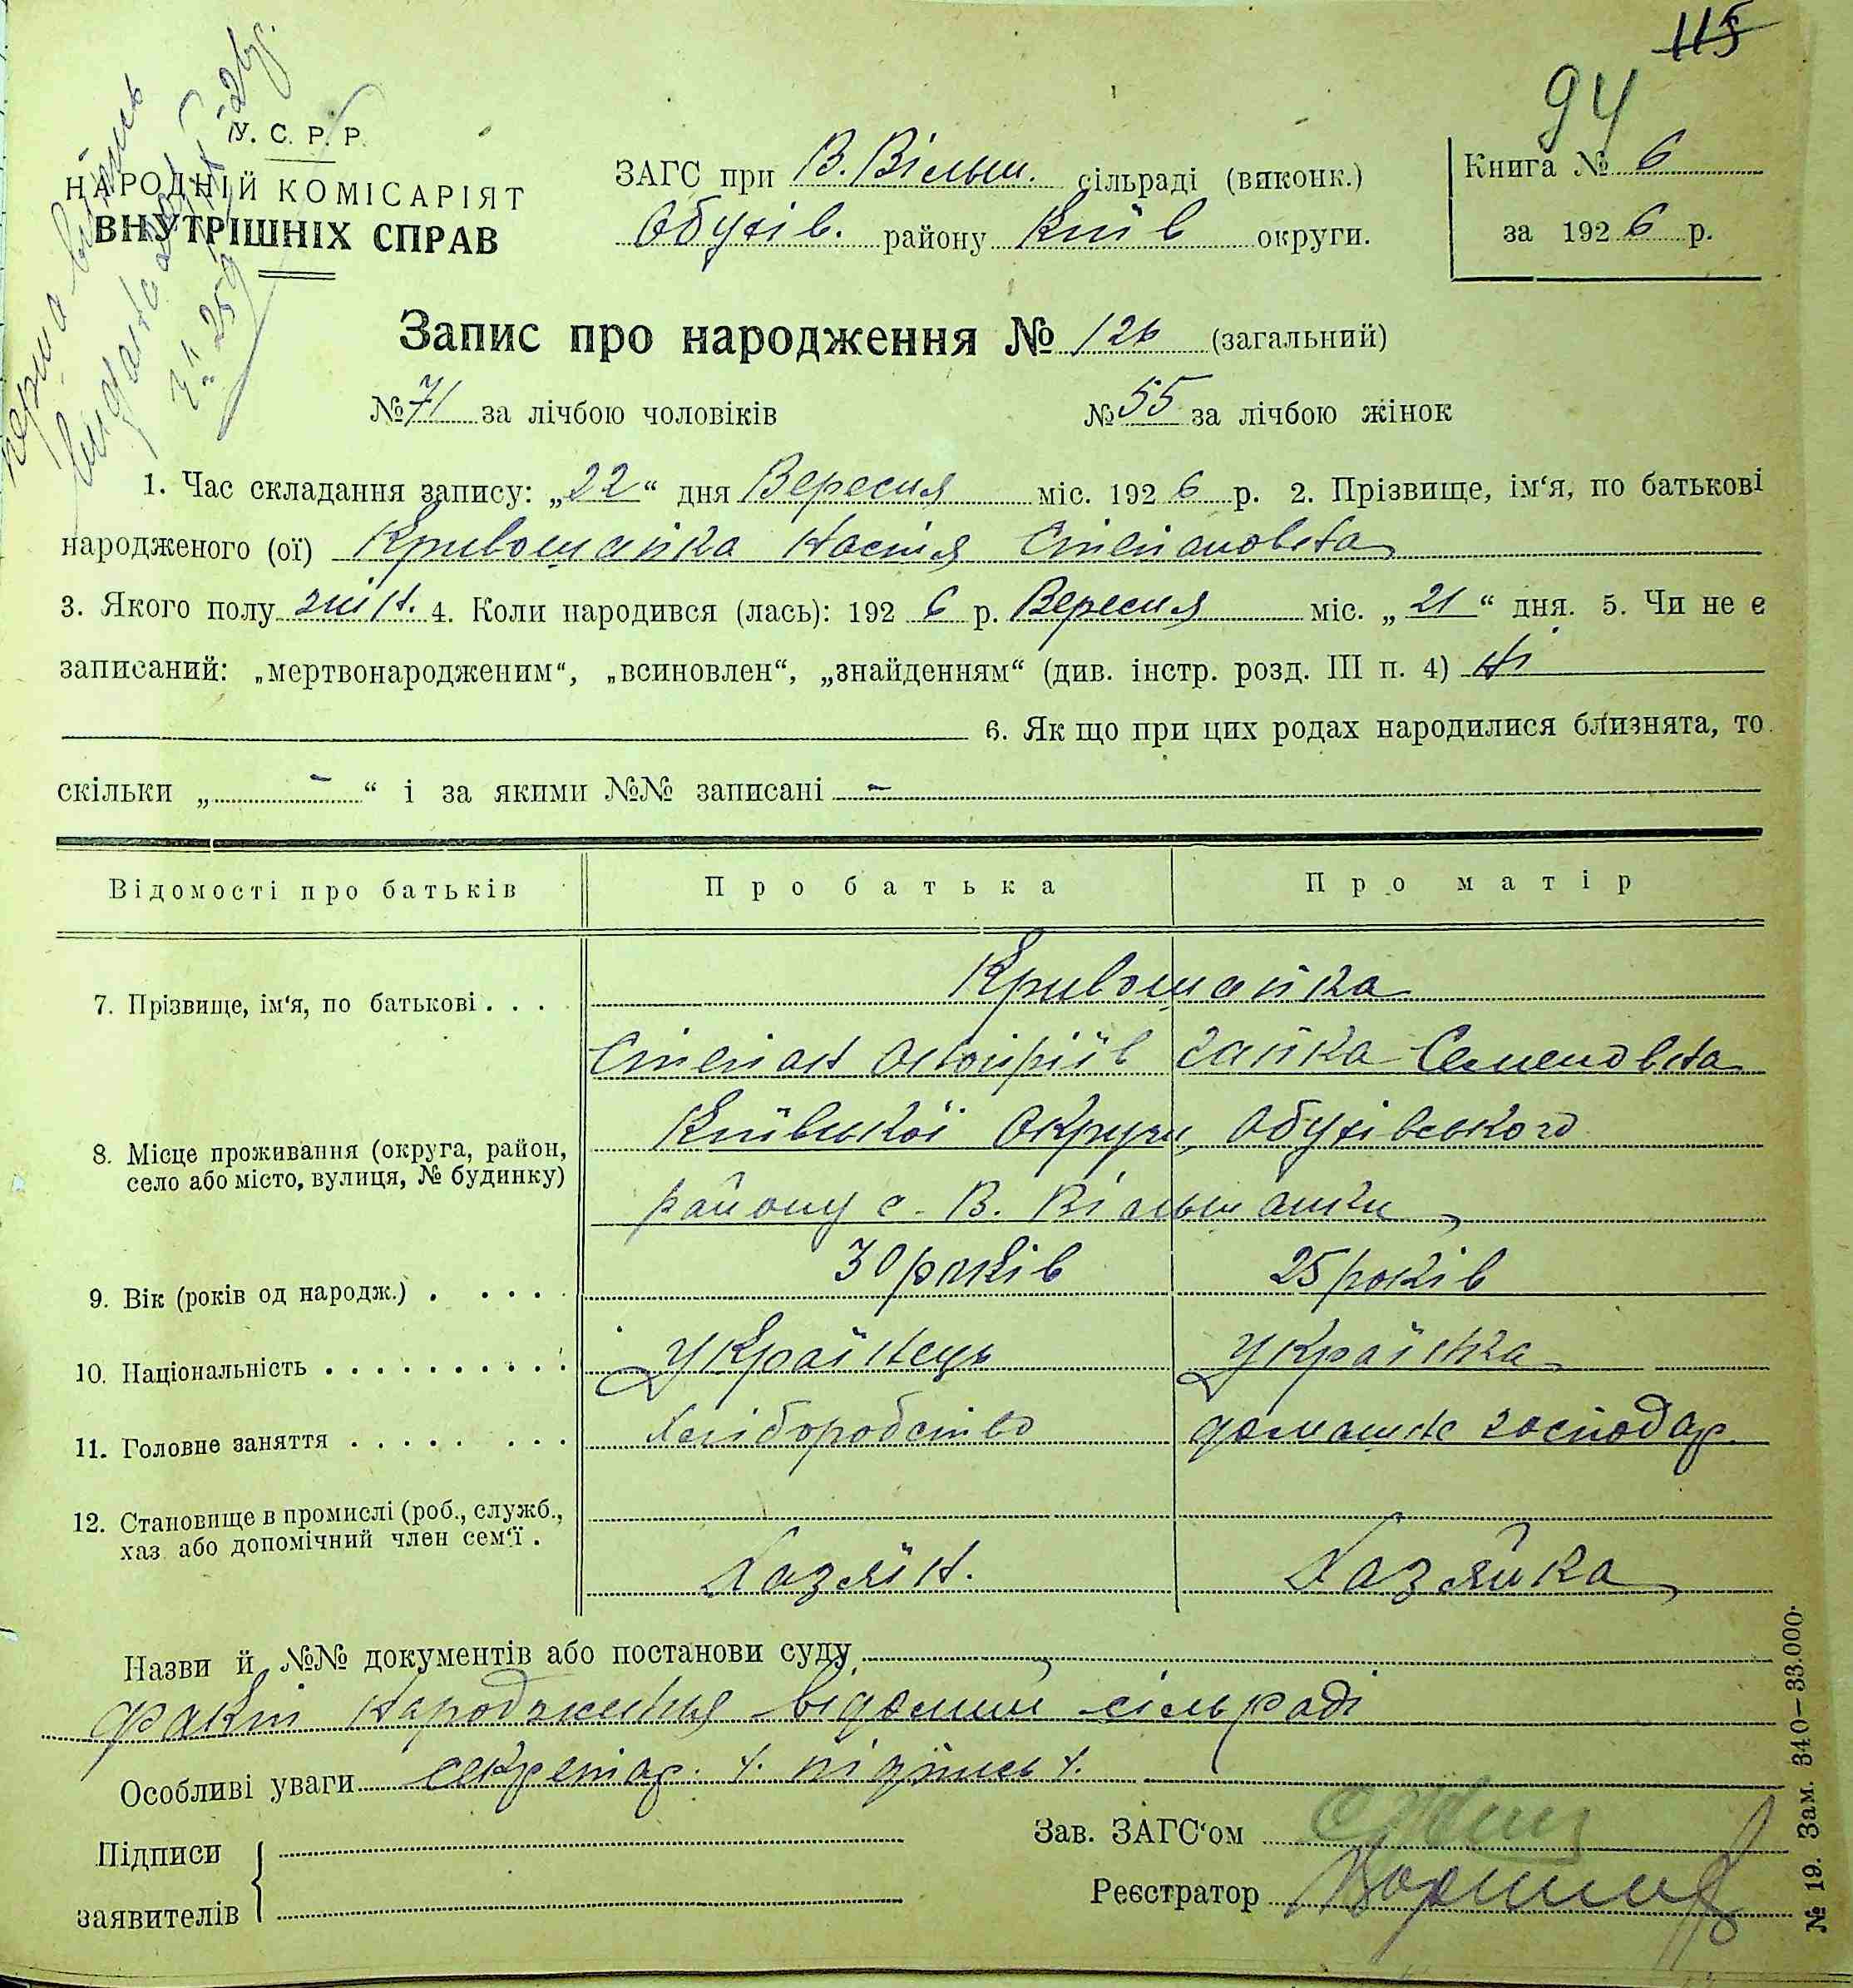 115
94
У. С. Р. Р.
НАРОДНІЙ КОМІСАРІЯТ
ВНУТРІШНІХ СПРАВ
перша випись
видана
ЗАГС при В. Вільш. сільраді (виконк.)
Обухів. району Київ округи.
Книга № 6
за 1926 р.
Запис про народження № 126 (загальний)
№ 71 за лічбою чоловіків № 55 за лічбою жінок
1. Час складання запису: „22“ дня Вересня міс. 1926 р. 2. Прізвище, ім‘я, по батькові
народженого (ої) Кривошайка Настя Степановна
3. Якого полу жін. 4. Коли народився (лась): 1926 р. Вересня міс. „21“ дня. 5. Чи не є
записаний: „мертвонародженим“, „всиновлен“, „знайденням“ (див. інстр. розд. III п. 4) ні
6. Як що при цих родах народилися близнята, то
скільки „ - “ і за якими №№ записані -
Відомості про батьків Про батька Про матір
7. Прізвище, ім‘я, по батькові . . . Кривошайка
Степан Семеновна
8. Місце проживання (округа, район, село або місто, вулиця, № будинку) Київської округи, Обухівського
району с. В. Вільшанки
9. Вік (років од народж.) . . . . . 30 років 25 років
10. Національність . . . . . . . . . . Українець Українка
11. Головне заняття . . . . . . . . Хліборобство домашнє господар.
12. Становище в промислі (роб., служб.,
хаз або допомічний член сем‘ї . Хазяїн. Хазяйка
Назви й №№ документів або постанови суду
факт народження відомий сільраді
Особливі уваги секретар. ч. підпись ч.
Підписи
заявителів
Зав. ЗАГС‘ом
Реєстратор
№ 19. Зам. 340—33.000.